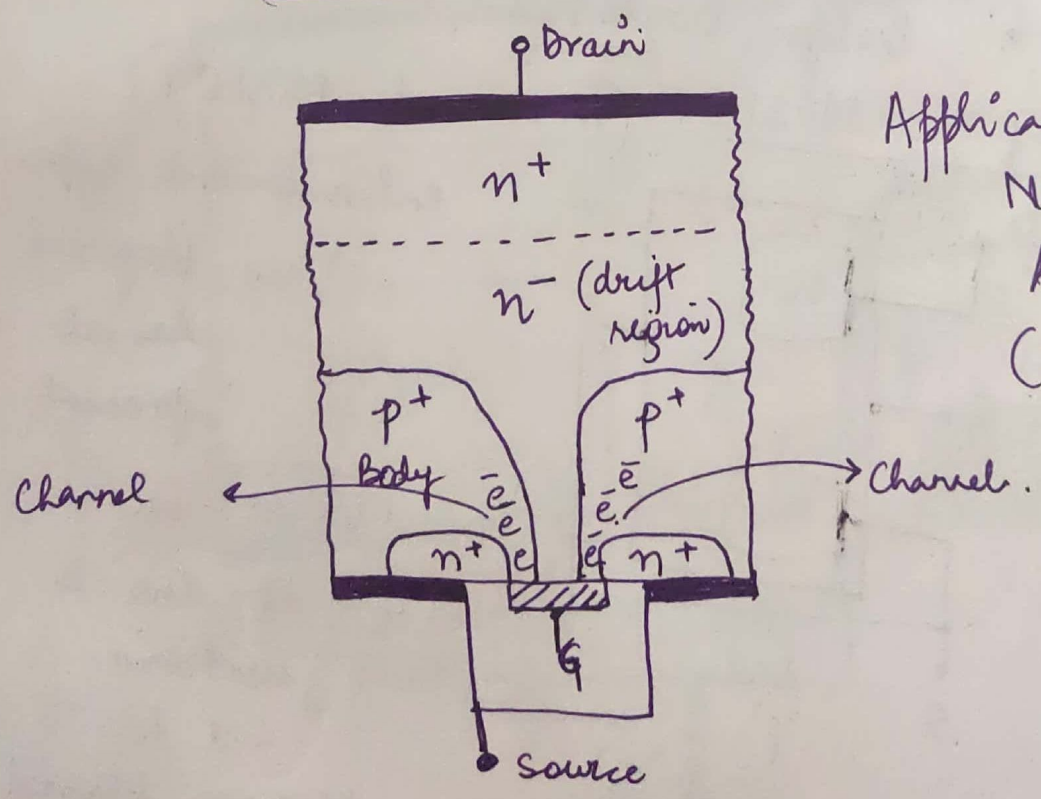 Drain
Applica
N
n⁺
n⁻ (drift
region)
p⁺
p⁺
Body
Channel
ē
e
e
ē
ē
ē
Channel.
n⁺
n⁺
G
Source